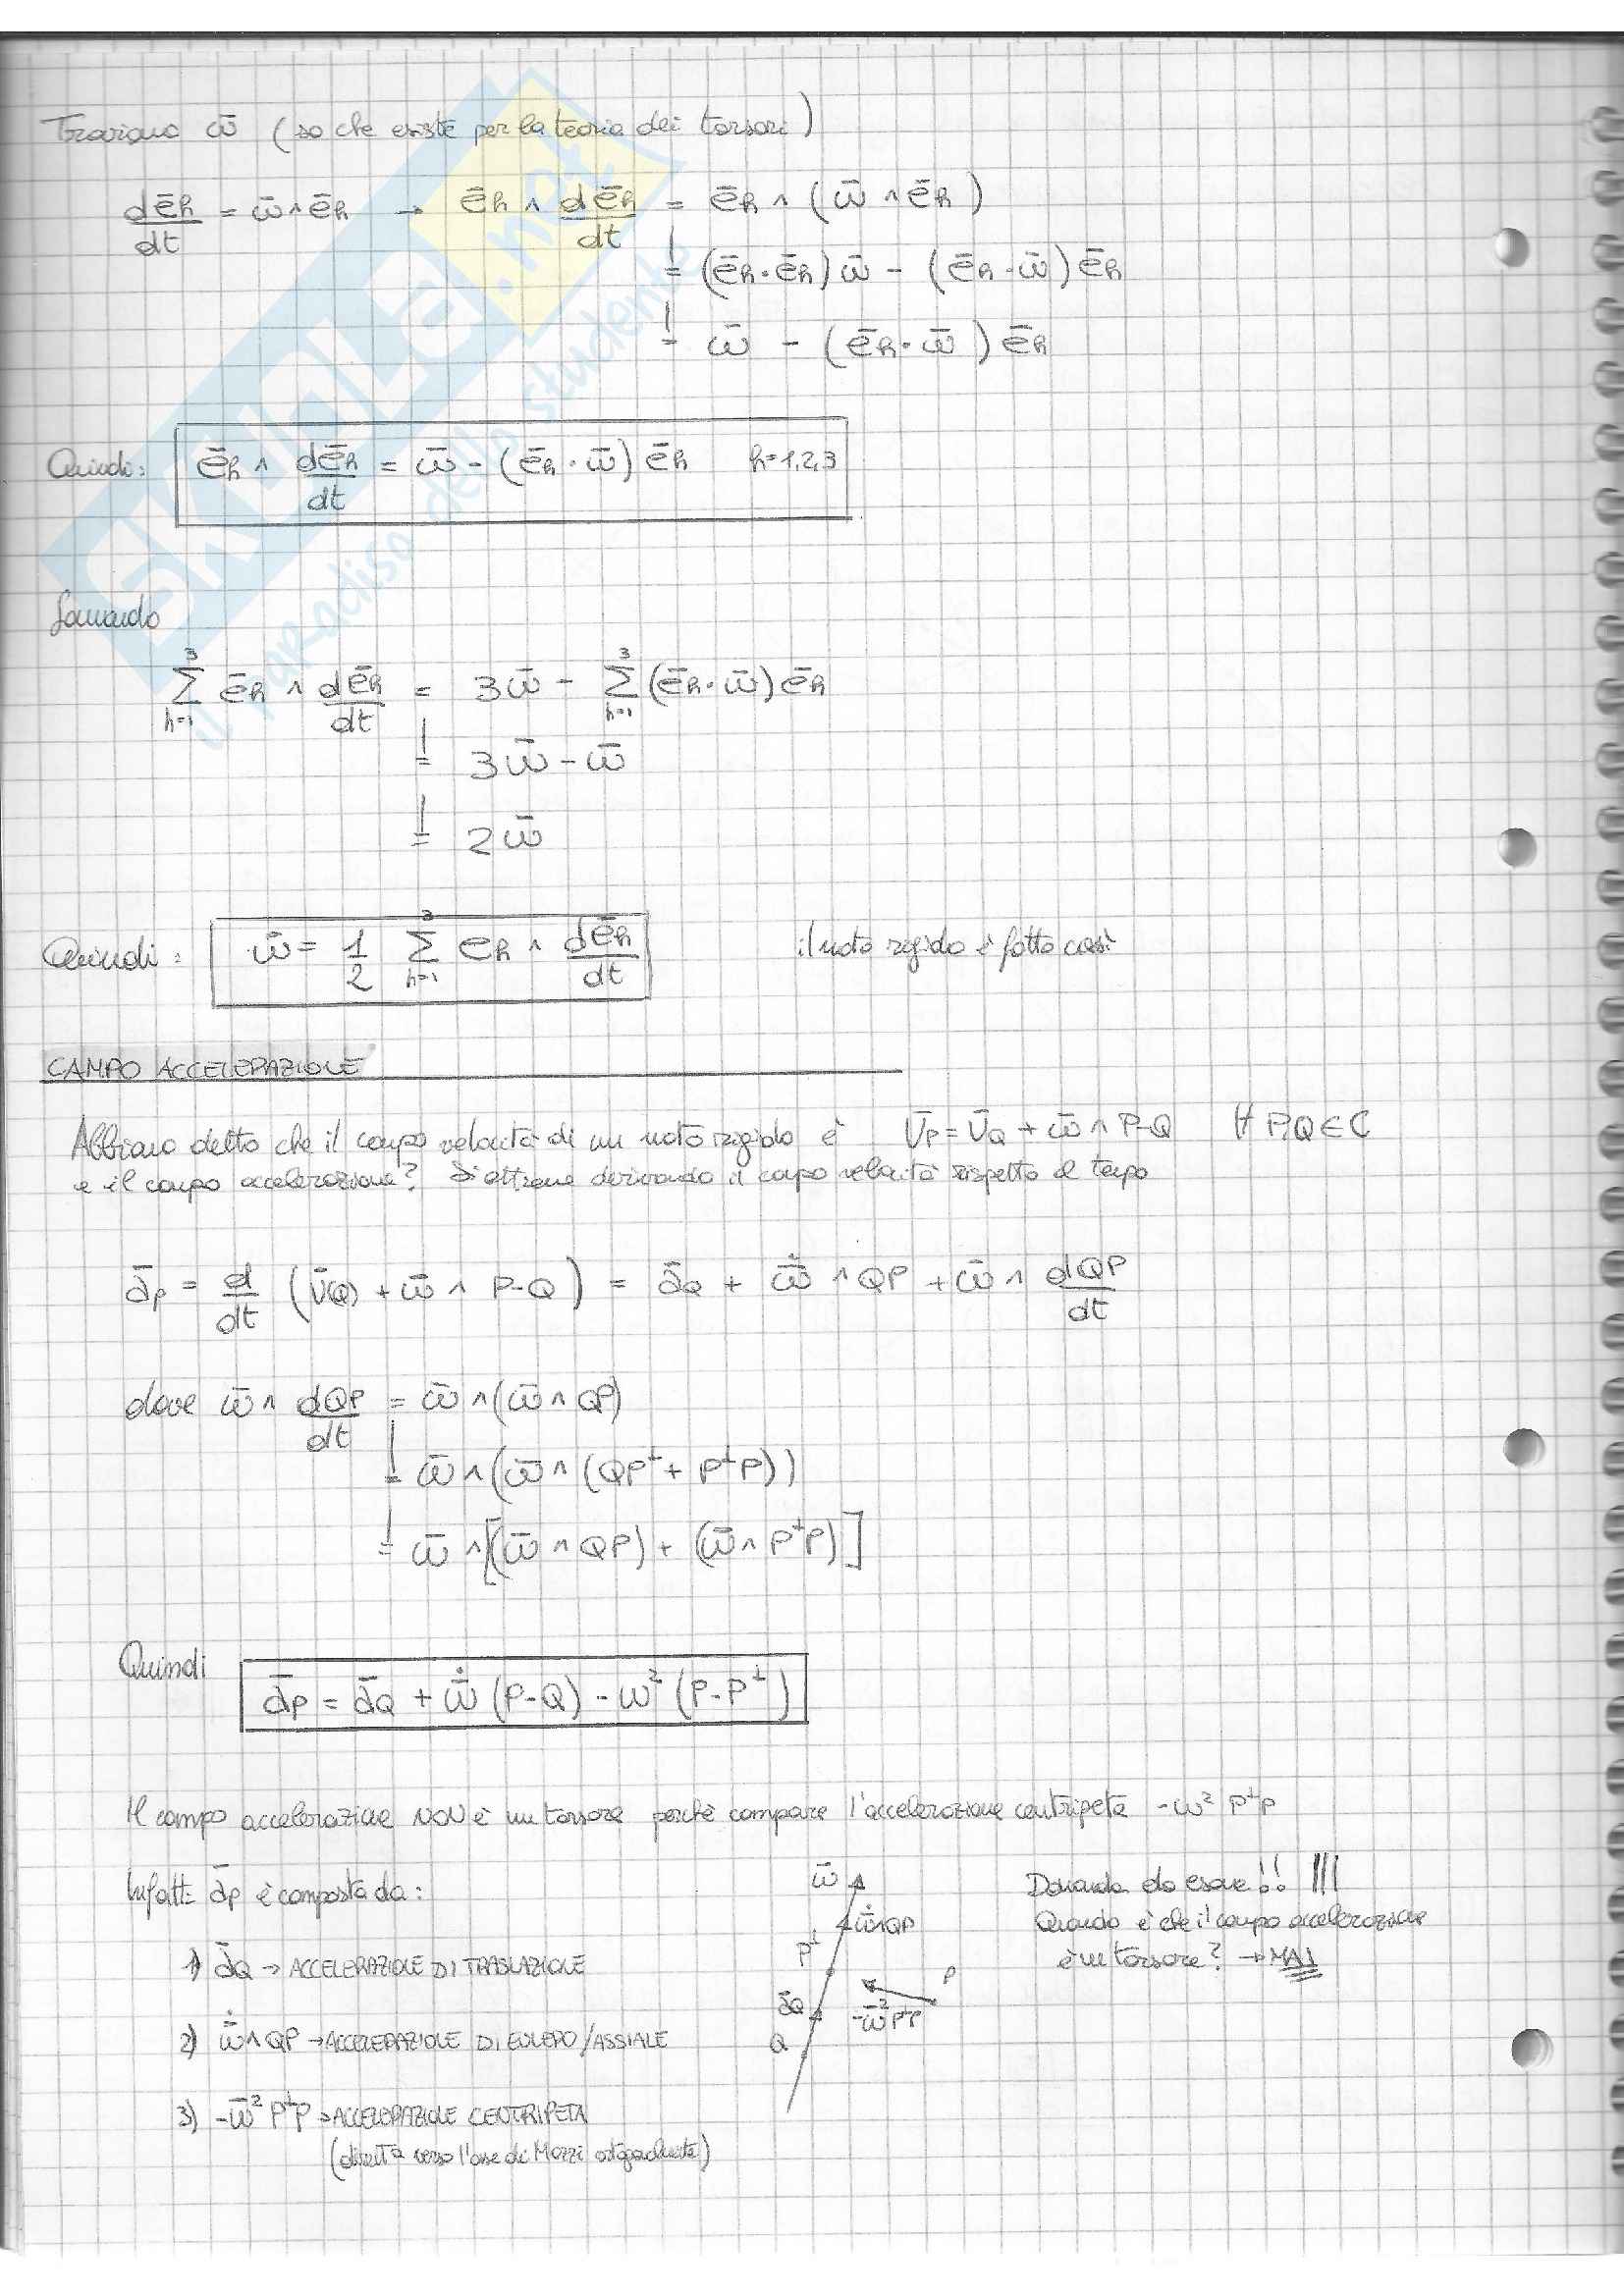 Troviamo ω̄ (so che esiste per la teoria dei torsori)
dēh/dt = ω̄ ∧ ēh → ēh ∧ dēh/dt = ēh ∧ (ω̄ ∧ ēh)
= (ēh · ēh) ω̄ - (ēh · ω̄) ēh
= ω̄ - (ēh · ω̄) ēh
Quindi: ēh ∧ dēh/dt = ω̄ - (ēh · ω̄) ēh h=1,2,3
Somando
3 Σ h=1 ēh ∧ dēh/dt = 3ω̄ - 3 Σ h=1 (ēh · ω̄) ēh
= 3ω̄ - ω̄
= 2ω̄
Quindi: ω̄ = 1/2 3 Σ h=1 eh ∧ dēh/dt il moto rigido è fatto così
CAMPO ACCELERAZIONE
Abbiamo detto che il campo velocità di un moto rigido è V̄P = V̄Q + ω̄ ∧ P-Q ∀ P,Q ∈ C
e il campo accelerazione? Si ottiene derivando il campo velocità rispetto al tempo
āP = d/dt (V̄(Q) + ω̄ ∧ P-Q) = āQ + ω̄̇ ∧ QP + ω̄ ∧ dQP/dt
dove ω̄ ∧ dQP/dt = ω̄ ∧ (ω̄ ∧ QP)
= ω̄ ∧ (ω̄ ∧ (QP⊥ + P⊥P))
= ω̄ ∧ [(ω̄ ∧ QP) + (ω̄ ∧ P⊥P)]
Quindi āP = āQ + ω̄̇ (P-Q) - ω² (P-P⊥)
Il campo accelerazione NON è un torsore perchè compare l'accelerazione centripeta -ω² P⊥P
Infatti āP è composta da:
1) āQ → ACCELERAZIONE DI TRASLAZIONE
2) ω̄̇ ∧ QP → ACCELERAZIONE DI EULERO/ASSIALE
3) -ω̄² P⊥P → ACCELERAZIONE CENTRIPETA
(diretta verso l'asse di Mozzi ortogonalmente)
ω̄
ω̄̇∧QP
P⊥
P
āQ
-ω̄² P⊥P
Q
Domanda da esame!! !!!
Quando è che il campo accelerazione
è un torsore? → MAI
SKUOLA.net
il par-adiso dello studente